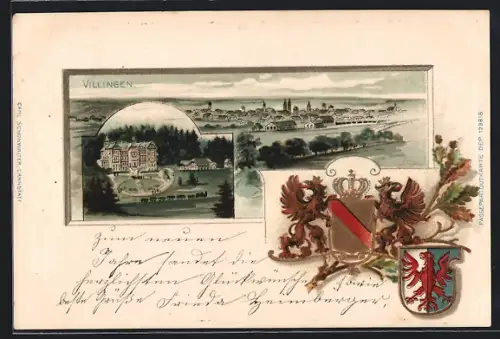 VILLINGEN.
CARL SCHÖNWALDER, CANNSTATT
PASSEPARTOUTKARTE DEP. 129816
Zum neuen
Jahre sendet die
herzlichsten Glückwünsche sowie
beste Grüße Frieda Heimberger.